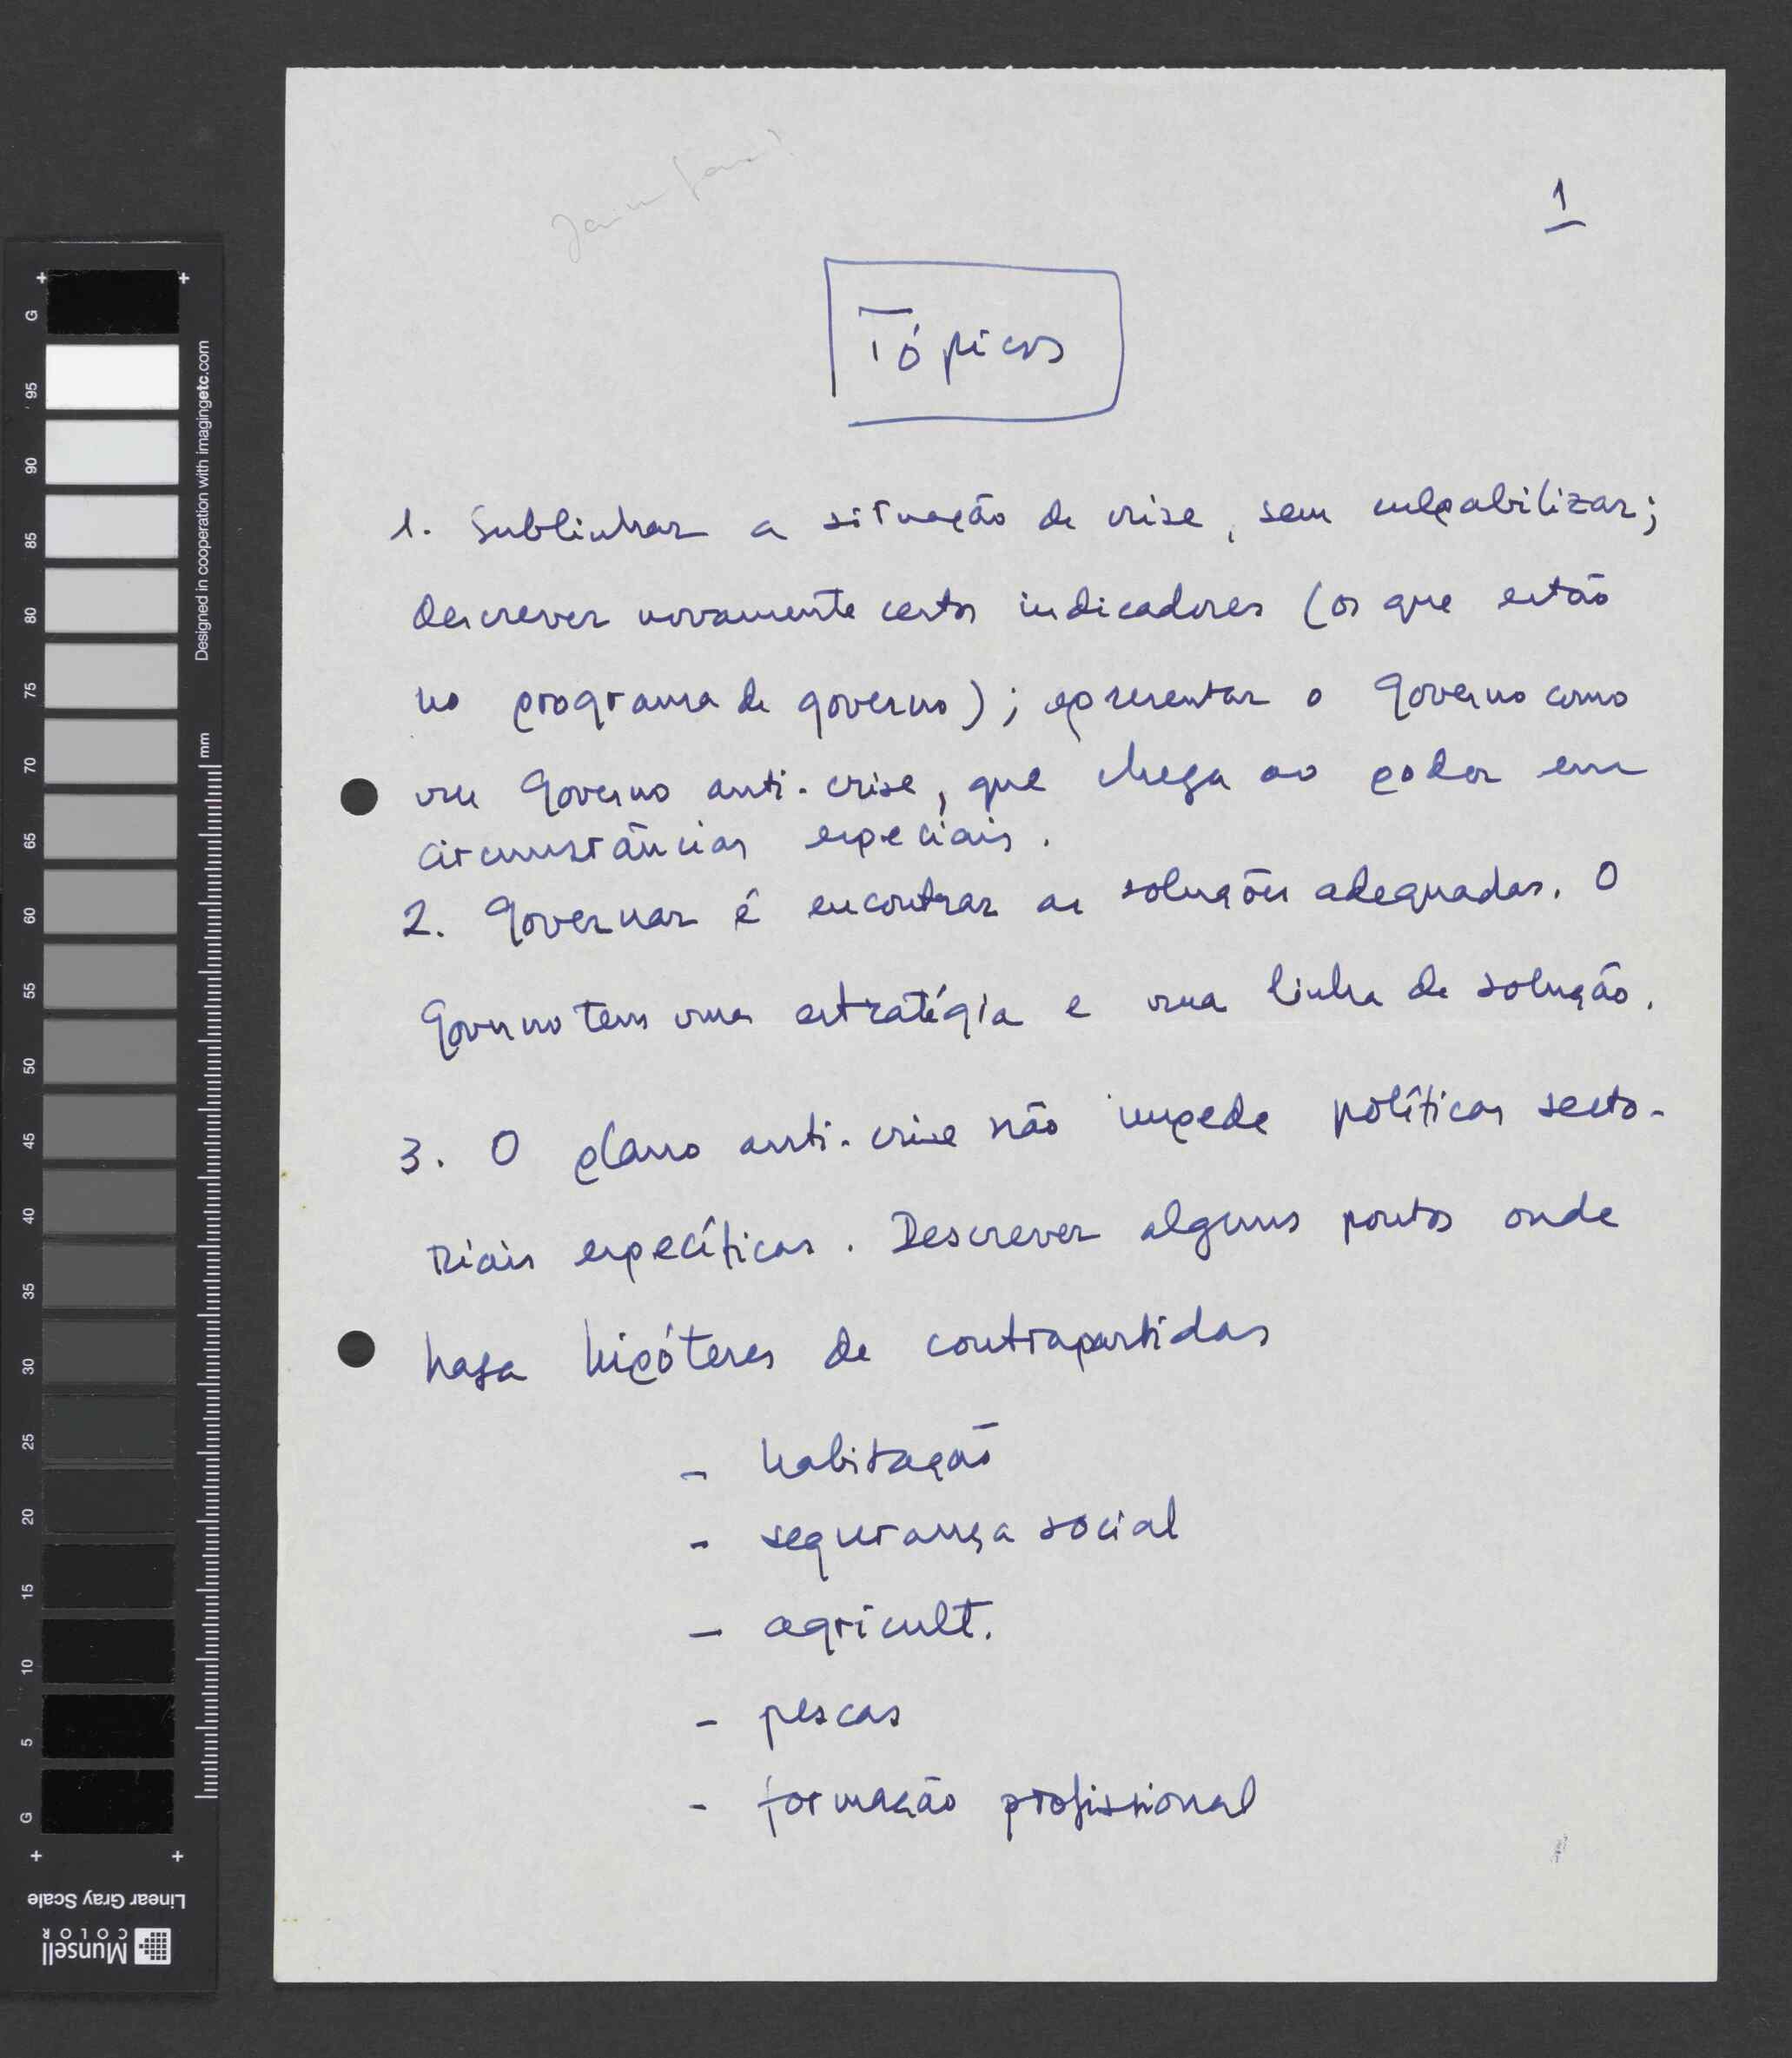 1
Tópicos
1. Sublinhar a situação de crise, sem culpabilizar;
descrever novamente certos indicadores (os que estão
no programa de governo); apresentar o Governo como
um Governo anti-crise, que chega ao poder em
circunstâncias especiais.
2. Governar é encontrar as soluções adequadas. O
Governo tem uma estratégia e uma linha de solução.
3. O plano anti-crise não impede políticas secto-
riais específicas. Descrever alguns pontos onde
haja hipóteses de contrapartidas
- habitação
- segurança social
- agricult.
- pescas
- formação profissional
G
95
90
85
80
75
70
65
60
55
50
45
40
35
30
25
20
15
10
5
G
Designed in cooperation with imagingetc.com
mm
Linear Gray Scale
Munsell
COLOR